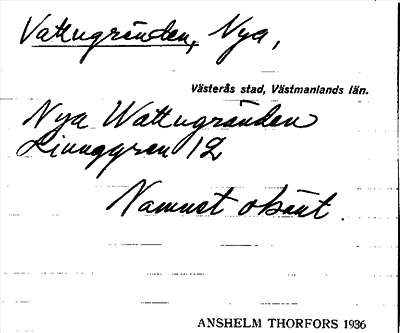 Vattugränden, Nya,
Västerås stad, Västmanlands län.
Nya Wattugränden
Linnggren 12
Namnet okänt.
ANSHELM THORFORS 1936